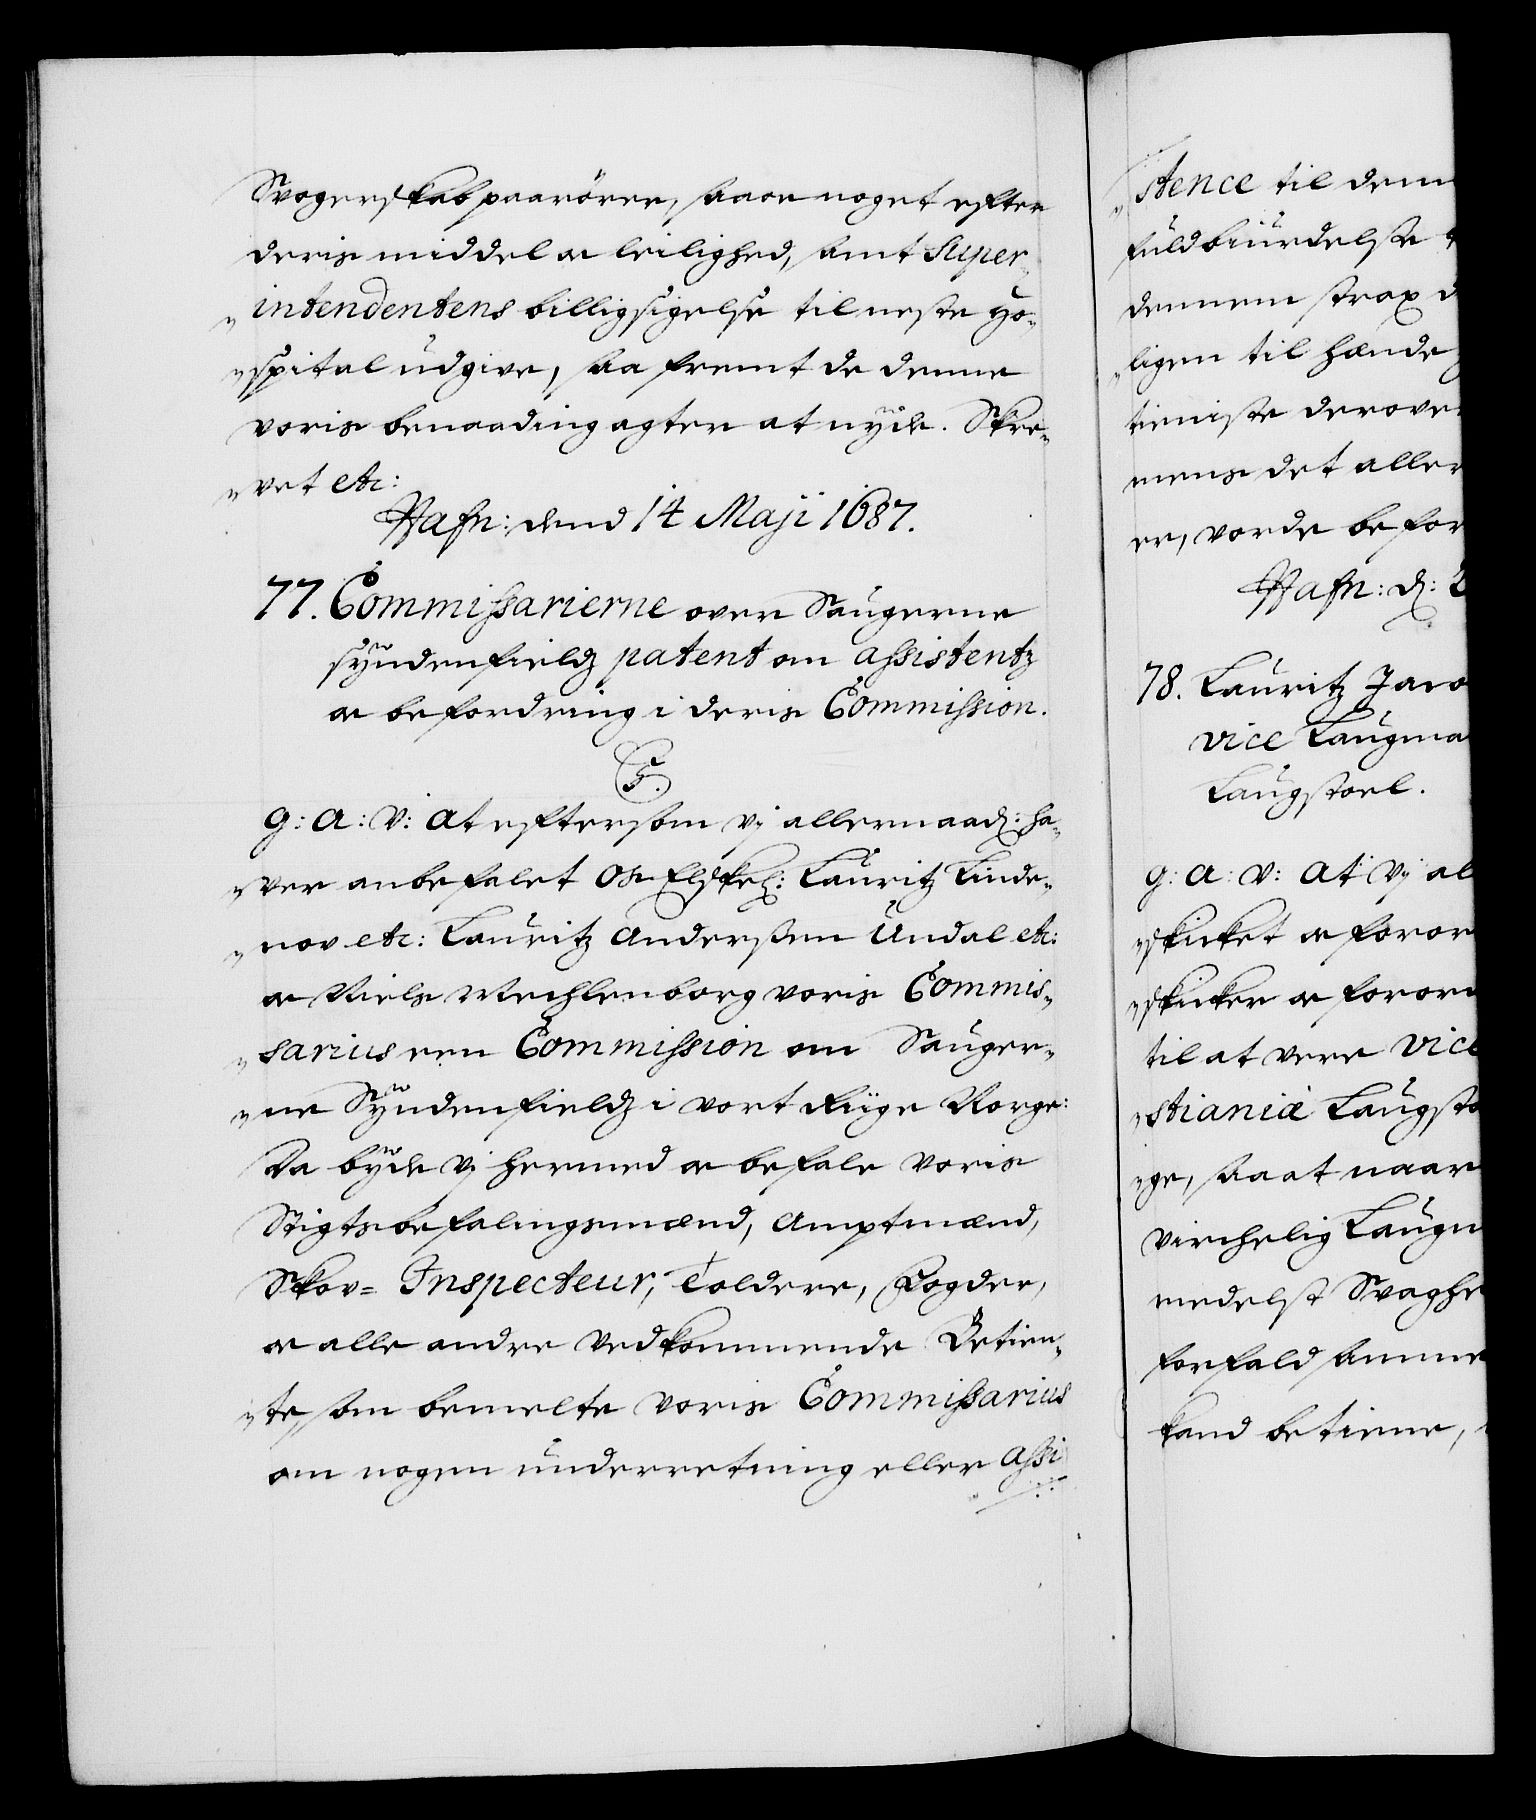 Svogerskab paarörer, saa oc noget efter
deris middel oc leilighed, samt Super-
intendentens billigsigelse til neste Ho-
spital udgive, saa fremt de denne
voris benaading agter at nyde. Skre-
vet etc:
Hafn: dend 14 Maji 1687.
77. Commissarierne over Saugerne
syndenfieldz patent om assistentz
oc befordring i deris Commission.
C5.
G: A: V: At eftersom Vj allernaad: ha-
ver anbefalet Os Elskel: Lauritz Linde-
nov etc: Lauritz Anderssen Undal etc:
oc Niels Mechlenborg voris Commis-
sarius een Commission om Sauger-
ne Syndenfieldz i vort Riige Norge:
Da byde Vj hermed oc befale voris
Stigtsbefalingsmænd, Amptmænd,
Skov= Inspecteur, Toldere, Fogder,
oc alle andre vedkommende Betien-
te, som bemelte voris Commissarius
om nogen underretning eller assi
stence til dem
fuldbiurdelste
dennem strax
ligen til hænde
tieniste derover
mens det aller
er, vorde befor
Hafn: d: 2
78. Lauritz Jaco
vice Laugma
Laugstoel.
G: A: V: At Vj al
skicket oc foror
skicker oc foror
til at vere Vice
stianiæ Laugsto
ge, saa at naar
virchelig Laugm
medelst Svaghe
forfald samme
kand betiene,